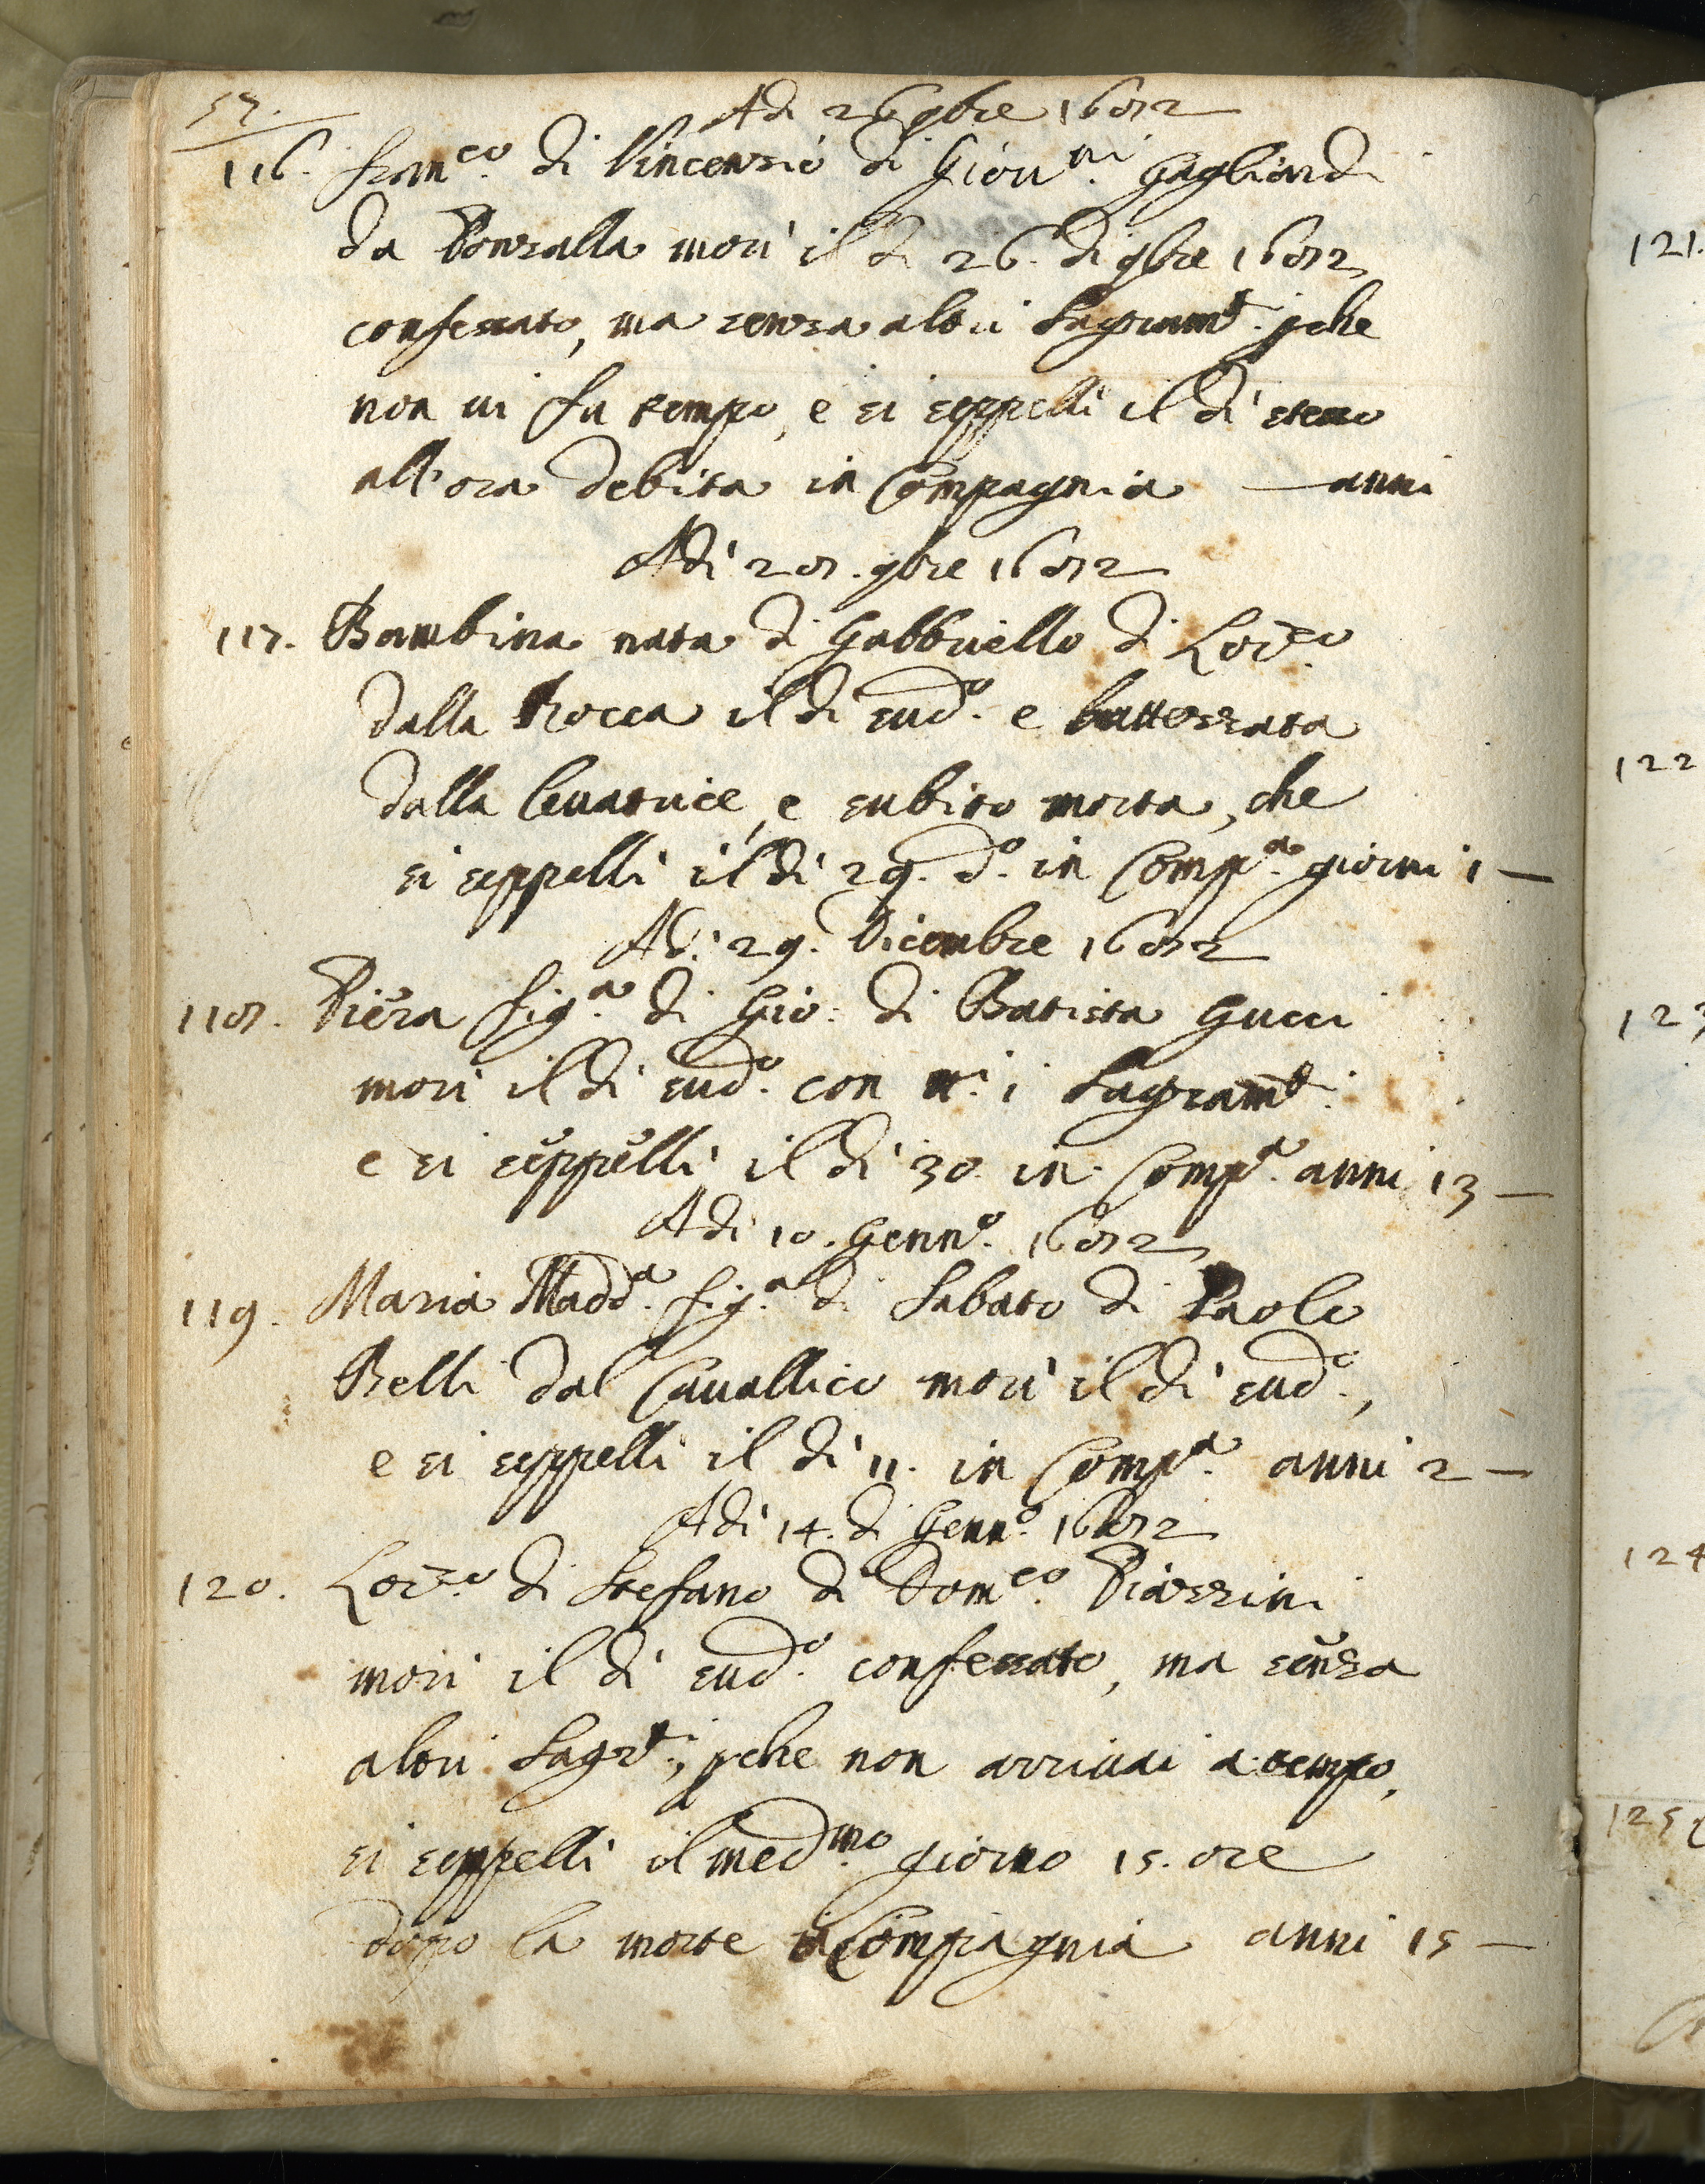 57.
Adi 26 9bre 1682
116. Franco. di Vincensio di Giovni. Gagliardi
da Ponzalla morì il dì 26. di 9bre 1682
confessato, ma senza altri Sagramti. pche
non vi fu tempo, e si seppellì il dì stesso
all'ora debita in Compagnia — anni
Adì 28. 9bre 1682
117. Bambina nata di Gabbriello di Lorzo.
dalla Rocca il dì sudo. e battezzata
dalla levatrice, e subito morta, che
si seppellì il dì 29. do. in Compa. giorni 1 —
Adì 29. Dicembre 1682
118. Piera figa. di Gio: di Batista Gucci
morì il dì sudo. con ti. i Sagramti.
e si seppellì il dì 30. in Compa. anni 13 —
Adì 10. Genno. 1682
119. Maria Madda. figa. di Sabato di Paolo
Belli dal Cavallico morì il dì sudo.,
e si seppellì il dì 11. in Compa. anni 2 —
Adì 14. di Genno. 1682
120. Lorzo. di Stefano di Domco. Piazzini
morì il dì sudo. confessato, ma senza
altri Sagrti., pche non arrivai a tempo,
si seppellì il medmo. giorno 15. ore
dopo la morte in Compagnia anni 15 —
121.
122
123
124
125